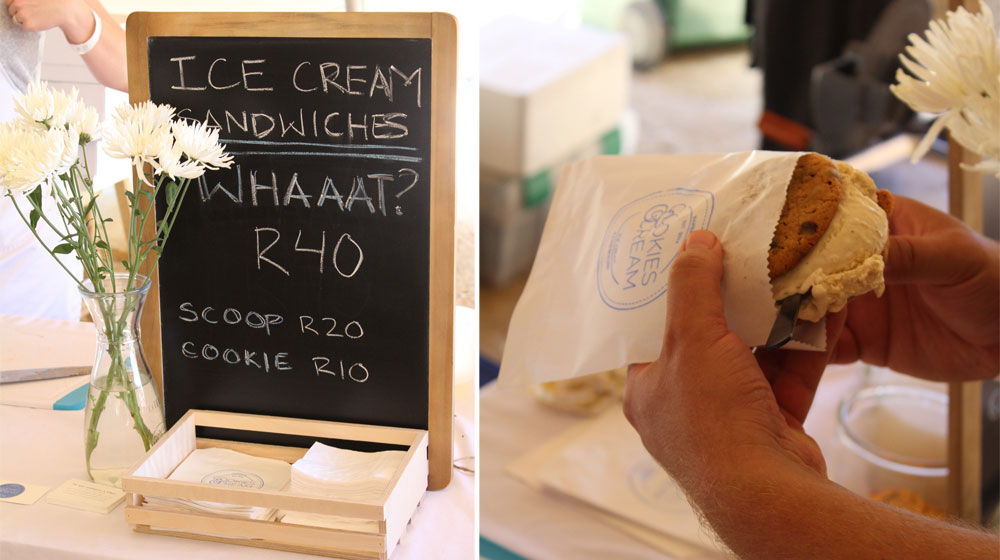 ICE CREAM
SANDWICHES
WHAAAT?
R40
SCOOP R20
COOKIE R10
COOKIES
CREAM